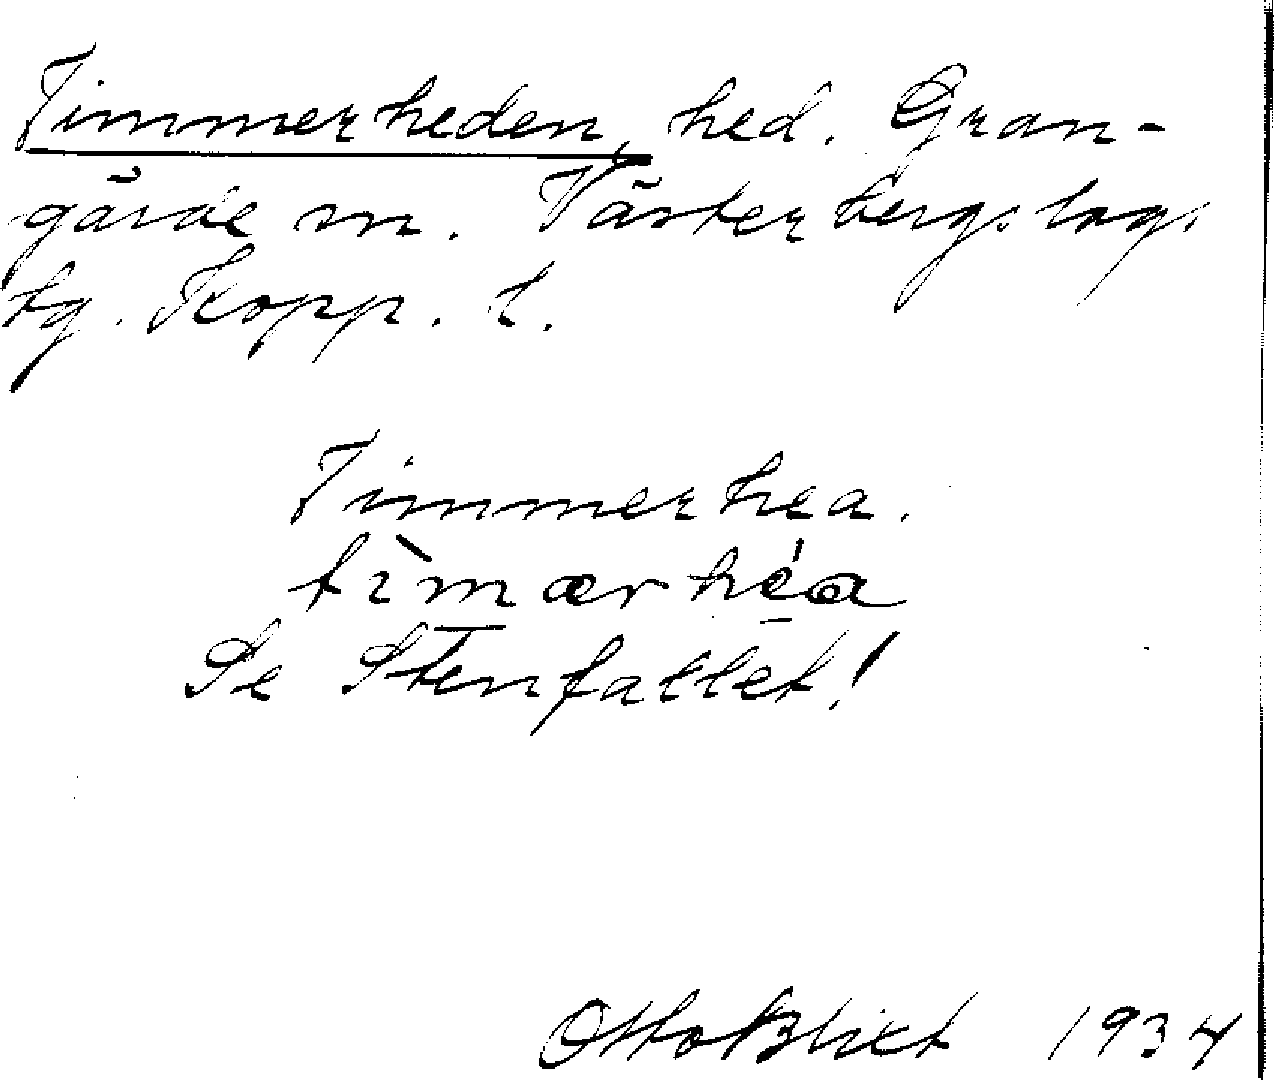 Timmerheden, hed. Gran-
gärde sn. Västerbergslags
tg. Kopp. l.
Timmerhea.
tìmærhéa
Se Stenfallet!
Otto Blixt 1934